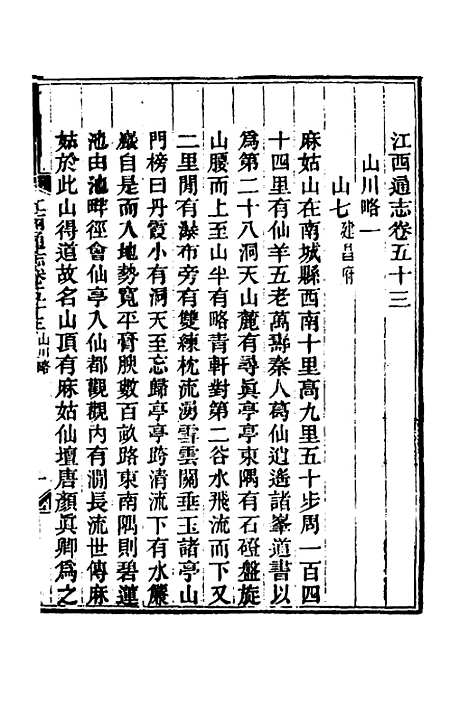 江西通志卷五十三
山川略一
山七建昌府
麻姑山在南城縣西南十里高九里五十步周一百四
十四里有仙羊五老萬壽秦人葛仙逍遙諸峯道書以
爲第二十八洞天山麓有尋眞亭亭東隅有石磴盤旋
山腰而上至山半有略青軒對第二谷水飛流而下又
二里間有瀑布旁有雙練枕流湧雪雲關垂玉諸亭山
門榜曰丹霞小有洞天至忘歸亭亭跨清流下有水簾
巖自是而入地勢寬平膏腴數百畝路東南隅則碧蓮
池由池畔徑會仙亭入仙都觀觀內有澗長流世傳麻
姑於此山得道故名山頂有麻姑仙壇唐顏眞卿爲之
江西通志卷五十三 山川略 一